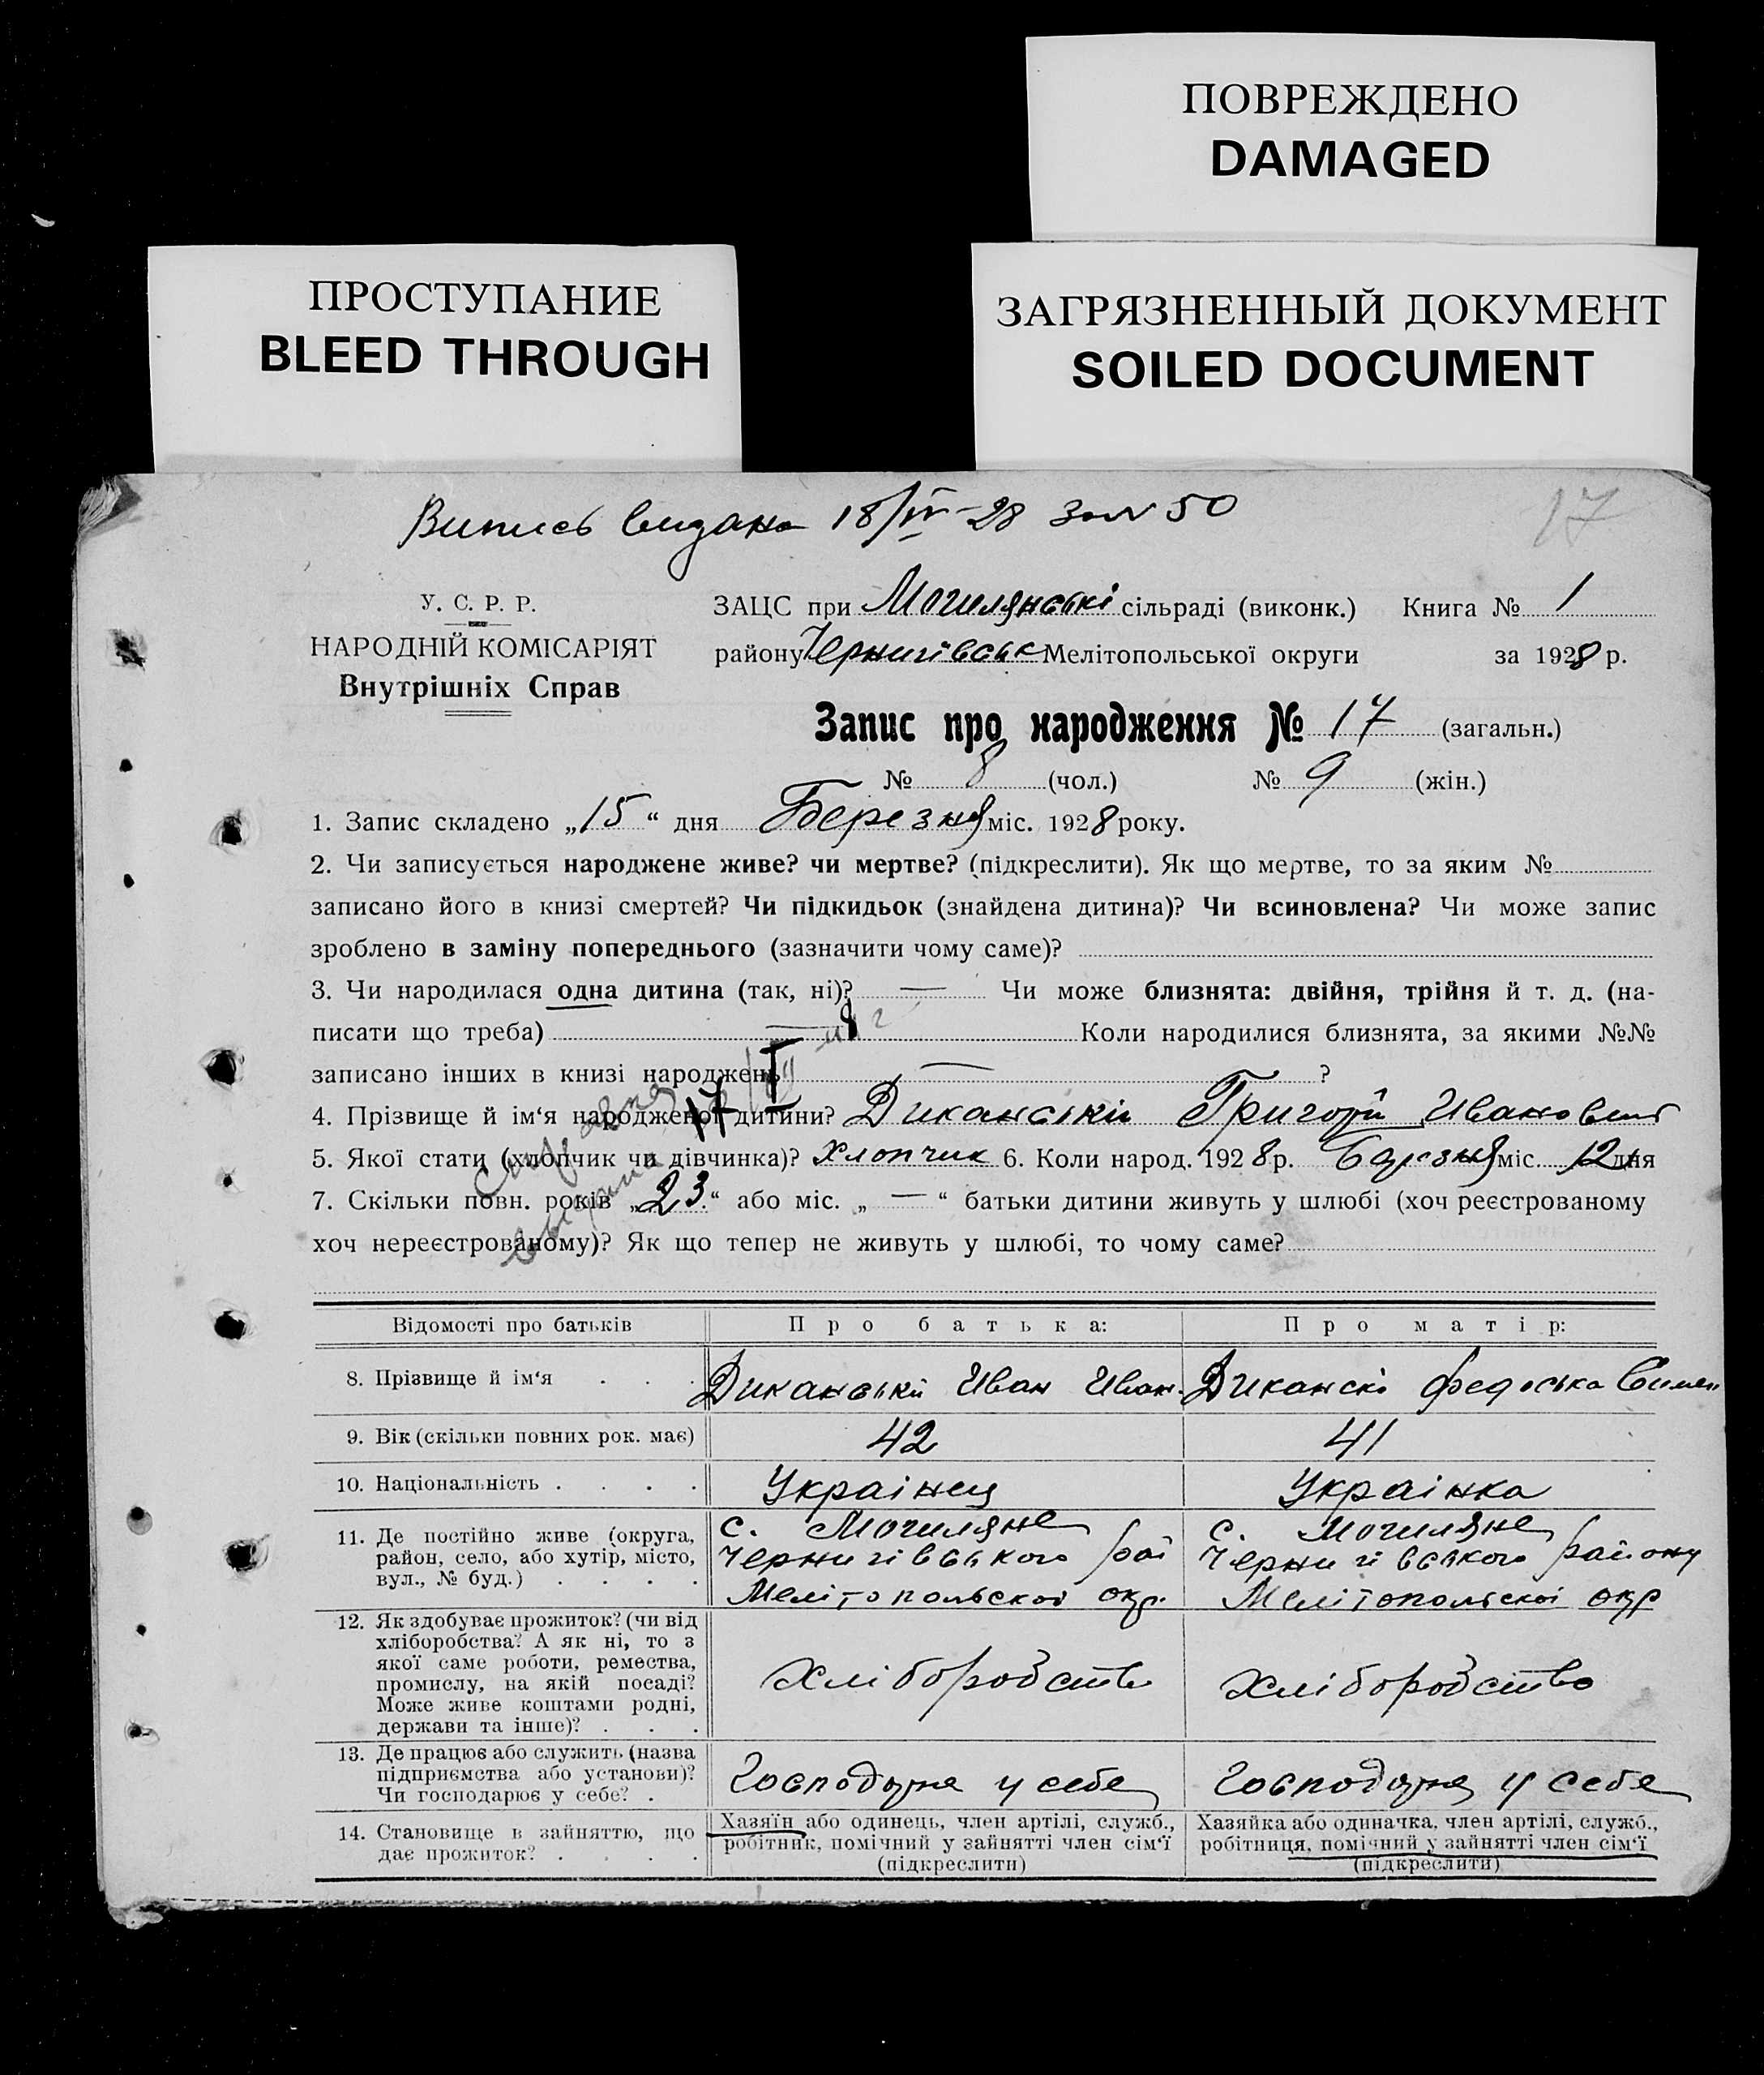 ПОВРЕЖДЕНО
DAMAGED
ПРОСТУПАНИЕ
BLEED THROUGH
ЗАГРЯЗНЕННЫЙ ДОКУМЕНТ
SOILED DOCUMENT
Випись видана 18/IV-28 за № 50
17
У. С. Р. Р.
НАРОДНІЙ КОМІСАРІЯТ
Внутрішніх Справ
ЗАЦС при Могилянські сільраді (виконк.) Книга № 1
району Чернигівськ Мелітопольської округи за 1928 р.
Запис про народження № 17 (загальн.)
№ 8 (чол.) № 9 (жін.)
1. Запис складено „15“ дня Березня міс. 1928 року.
2. Чи записується народжене живе? чи мертве? (підкреслити). Як що мертве, то за яким №
записано його в книзі смертей? Чи підкидьок (знайдена дитина)? Чи всиновлена? Чи може запис
зроблено в заміну попереднього (зазначити чому саме)?
3. Чи народилася одна дитина (так, ні)? — Чи може близнята: двійня, трійня й т. д. (на-
писати що треба) — Коли народилися близнята, за якими №№
записано інших в книзі народжень — ?
4. Прізвище й ім‘я народженої дитини? Диканській Григорій Иванович
5. Якої стати (хлопчик чи дівчинка)? Хлопчик 6. Коли народ. 1928 р. Березня міс. 12 дня
7. Скільки повн. років „23“ або міс. „ — “ батьки дитини живуть у шлюбі (хоч реєстрованому
хоч нереєстрованому)? Як що тепер не живуть у шлюбі, то чому саме?
Відомості про батьків Про батька: Про матір:
8. Прізвище й ім‘я . . . Диканській Иван Иван. Диканскі Федоська
9. Вік (скільки повних рок. має) 42 41
10. Національність . . . . Українец Українка
11. Де постійно живе (округа, район, село, або хутір, місто, вул., № буд.) . . . .
с. Могиляне с. Могиляне
Чернигівського рай Чернигівського району
Мелітопольскоі окр. Мелітопольскоі окр
12. Як здобуває прожиток? (чи від хліборобства? А як ні, то з якої саме роботи, ремества, промислу, на якій посаді? Може живе коштами родні, держави та інше)? . . .
Хліборобство Хліборобство
13. Де працює або служить (назва підприємства або установи)? Чи господарює у себе? .
Господарює у себе Господарює у себе
14. Становище в зайняттю, що дає прожиток? . . . .
Хазяїн або одинець, член артілі, служб., робітник, помічний у зайнятті член сім‘ї (підкреслити)
Хазяйка або одиначка, член артілі, служб., робітниця, помічний у зайнятті член сім‘ї (підкреслити)